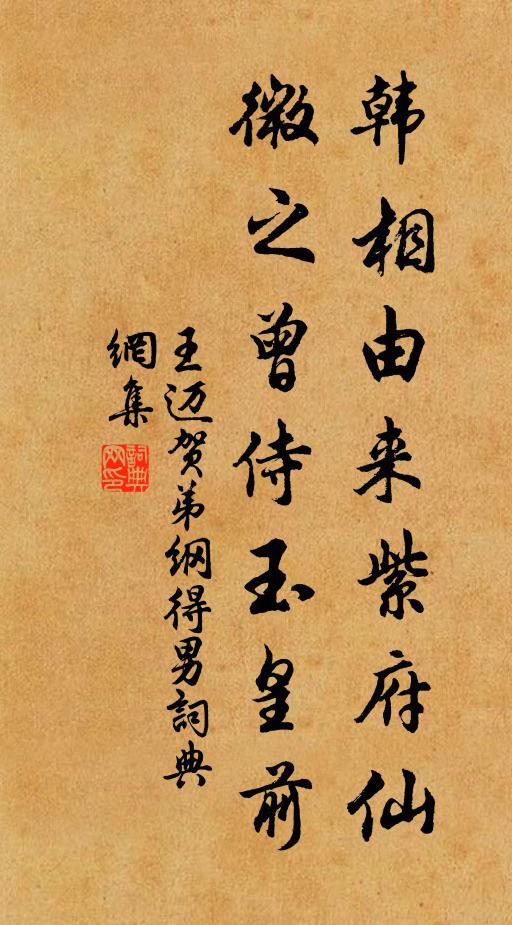 韩相由来紫府仙
微之曾侍玉皇前
王迈贺弟纲得男詞典
網集
詞典网印